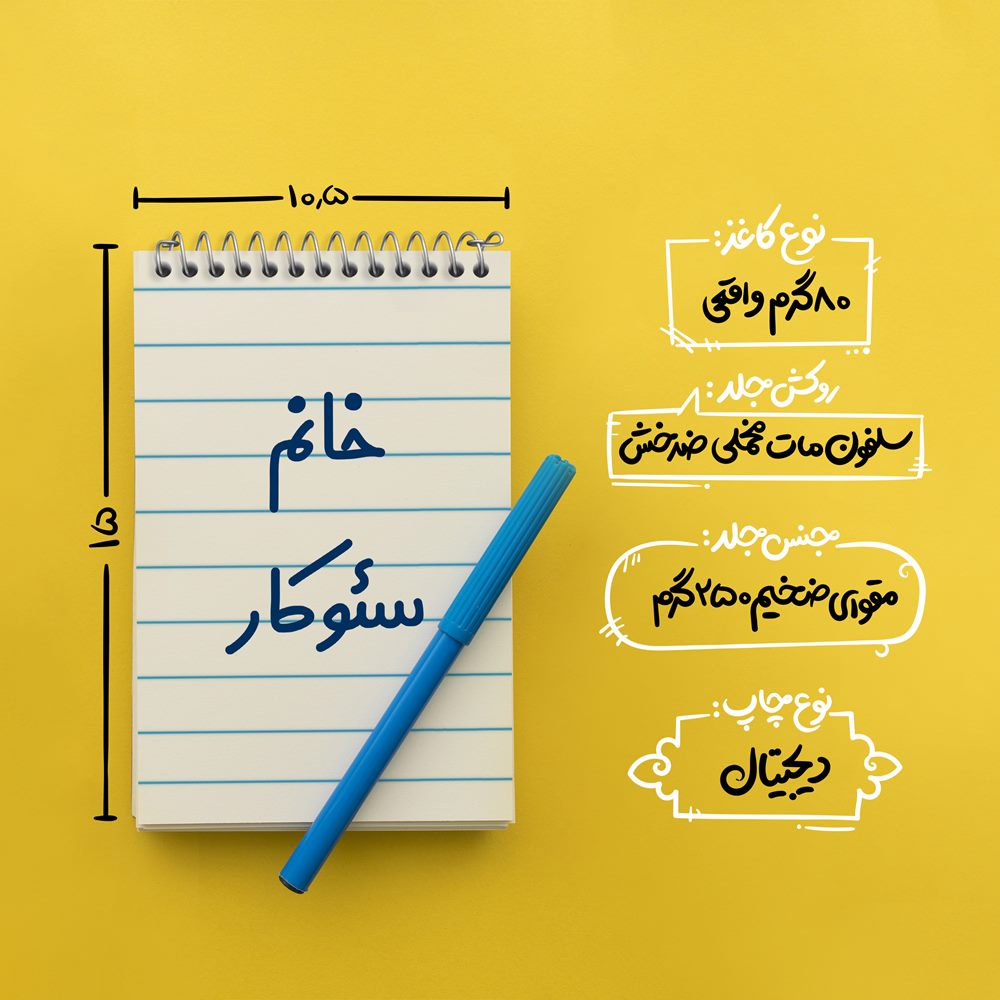 ۱۰٫۵
۱۵
خانم
سئوکار
نوع کاغذ:
۸۰گرم واقعی
روکش جلد:
سلفون مات مخملی ضدخش
جنس جلد:
مقوای ضخیم ۲۵۰گرم
نوع چاپ:
دیجیتال